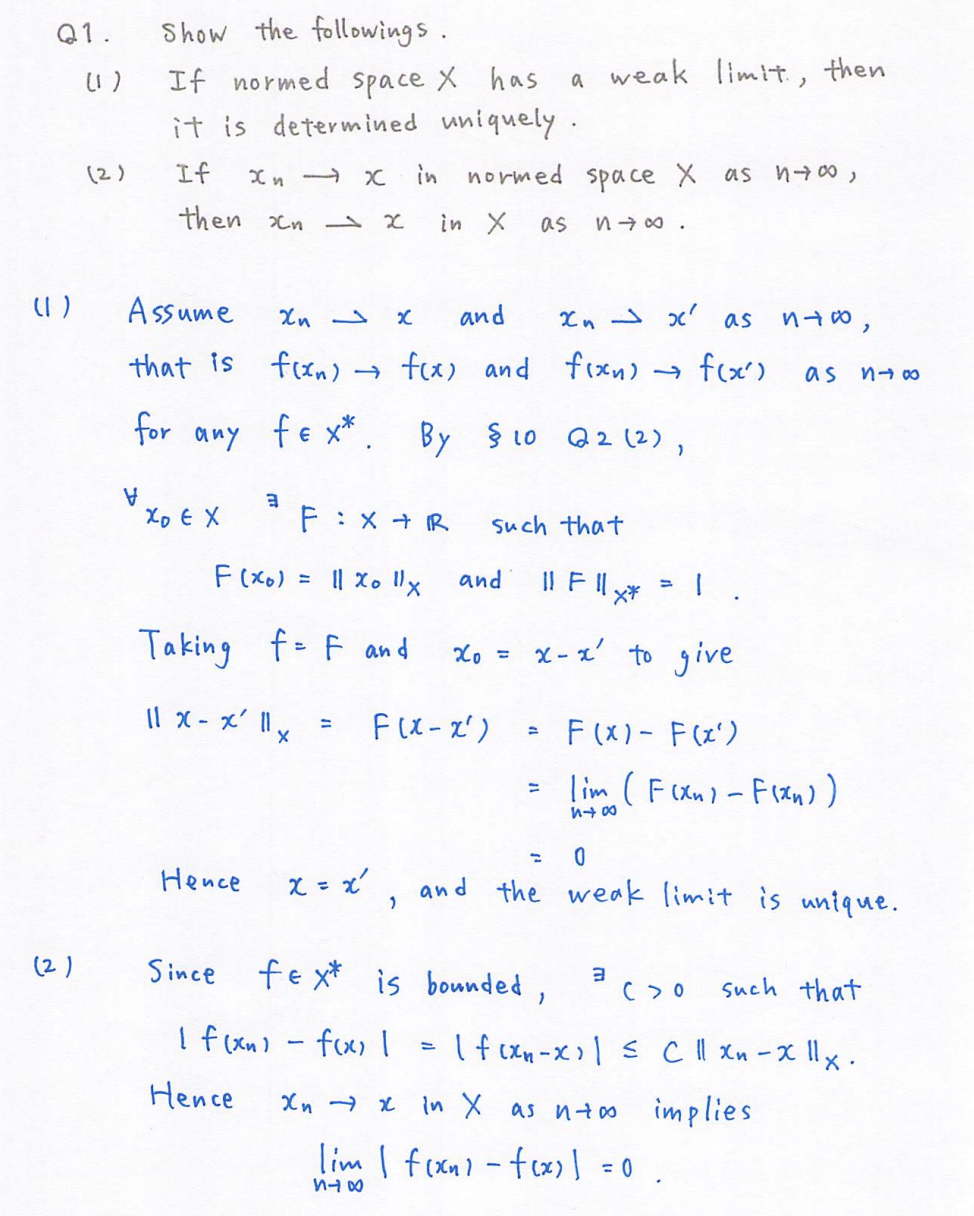 Q1. Show the followings.
(1) If normed space X has a weak limit, then
it is determined uniquely.
(2) If xn → x in normed space X as n→∞,
then xn ⇀ x in X as n→∞.
(1) Assume xn ⇀ x and xn ⇀ x′ as n→∞,
that is f(xn) → f(x) and f(xn) → f(x′) as n→∞
for any f ∈ X*. By §10 Q2(2),
∀x0 ∈ X ∃F : X → ℝ such that
F(x0) = ‖x0‖X and ‖F‖X* = 1.
Taking f = F and x0 = x-x′ to give
‖x-x′‖X = F(x-x′) = F(x) - F(x′)
= lim n→∞ (F(xn) - F(xn))
= 0
Hence x = x′, and the weak limit is unique.
(2) Since f ∈ X* is bounded, ∃C>0 such that
|f(xn) - f(x)| = |f(xn-x)| ≤ C‖xn-x‖X.
Hence xn → x in X as n→∞ implies
lim n→∞ |f(xn) - f(x)| = 0.